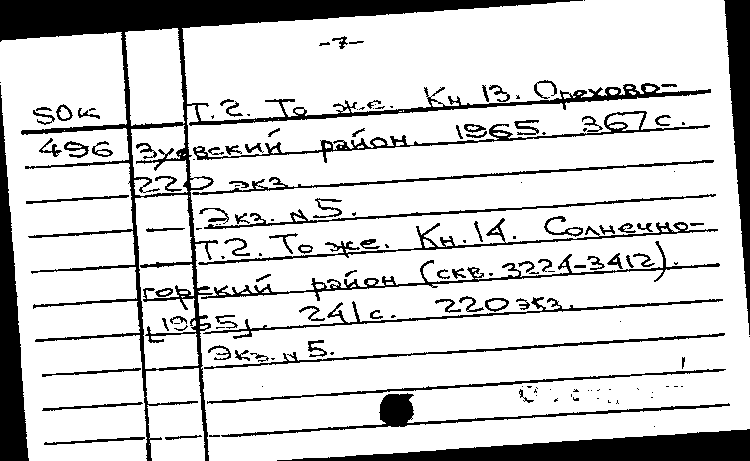 -7-
SOK Т.2. То же. Кн. 13. Орехово-
496 Зуевский район. 1965. 367 с.
220 экз.
Экз. N 5.
Т.2. То же. Кн. 14. Солнечно-
горский район (скв. 3224-3412).
[1965]. 241 с. 220 экз.
Экз. N 5.